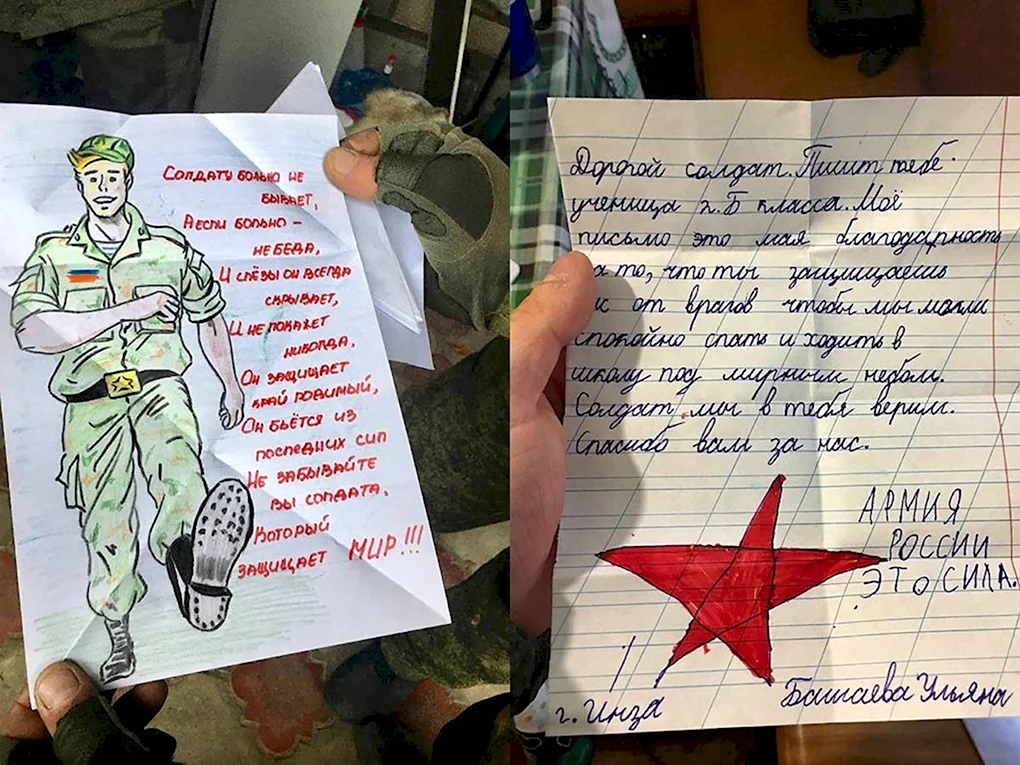 СОЛДАТУ БОЛЬНО НЕ
БЫВАЕТ,
А ЕСЛИ БОЛЬНО –
НЕ БЕДА,
И СЛЁЗЫ ОН ВСЕГДА
СКРЫВАЕТ,
И НЕ ПОКАЖЕТ
НИКОГДА.
ОН ЗАЩИЩАЕТ
КРАЙ РОДИМЫЙ,
ОН БЬЁТСЯ ИЗ
ПОСЛЕДНИХ СИЛ
НЕ ЗАБЫВАЙТЕ
ВЫ СОЛДАТА,
КОТОРЫЙ
ЗАЩИЩАЕТ МИР!!!
Дорогой солдат. Пишит тебе
ученица 2 Б класса. Моё
письмо это мая благодарность
а то, что ты защищаешь
с от врагов чтобы мы могли
спокойно спать и ходить в
школу под мирным небом.
Солдат мы в тебя верим.
Спасибо вам за нас.
АРМИЯ
РОССИИ
ЭТО СИЛА.
г. Инза
Башаева Ульяна